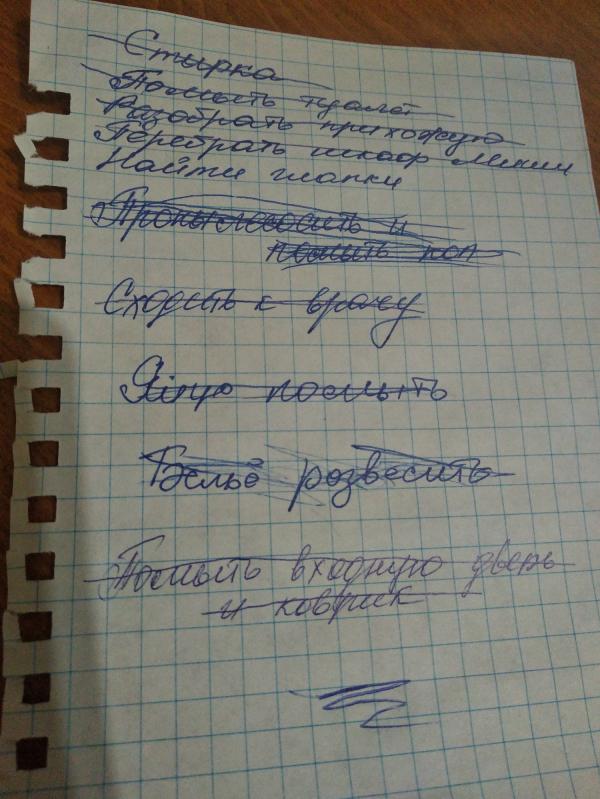 Стирка
Помыть туалет
Разобрать прихожую
Перебрать шкаф
Найти тапки
Пропылесосить и
помыть пол
Сходить к врачу
Яйцо посмыть
Бельё розвесить
Помыть входную дверь
и коврик